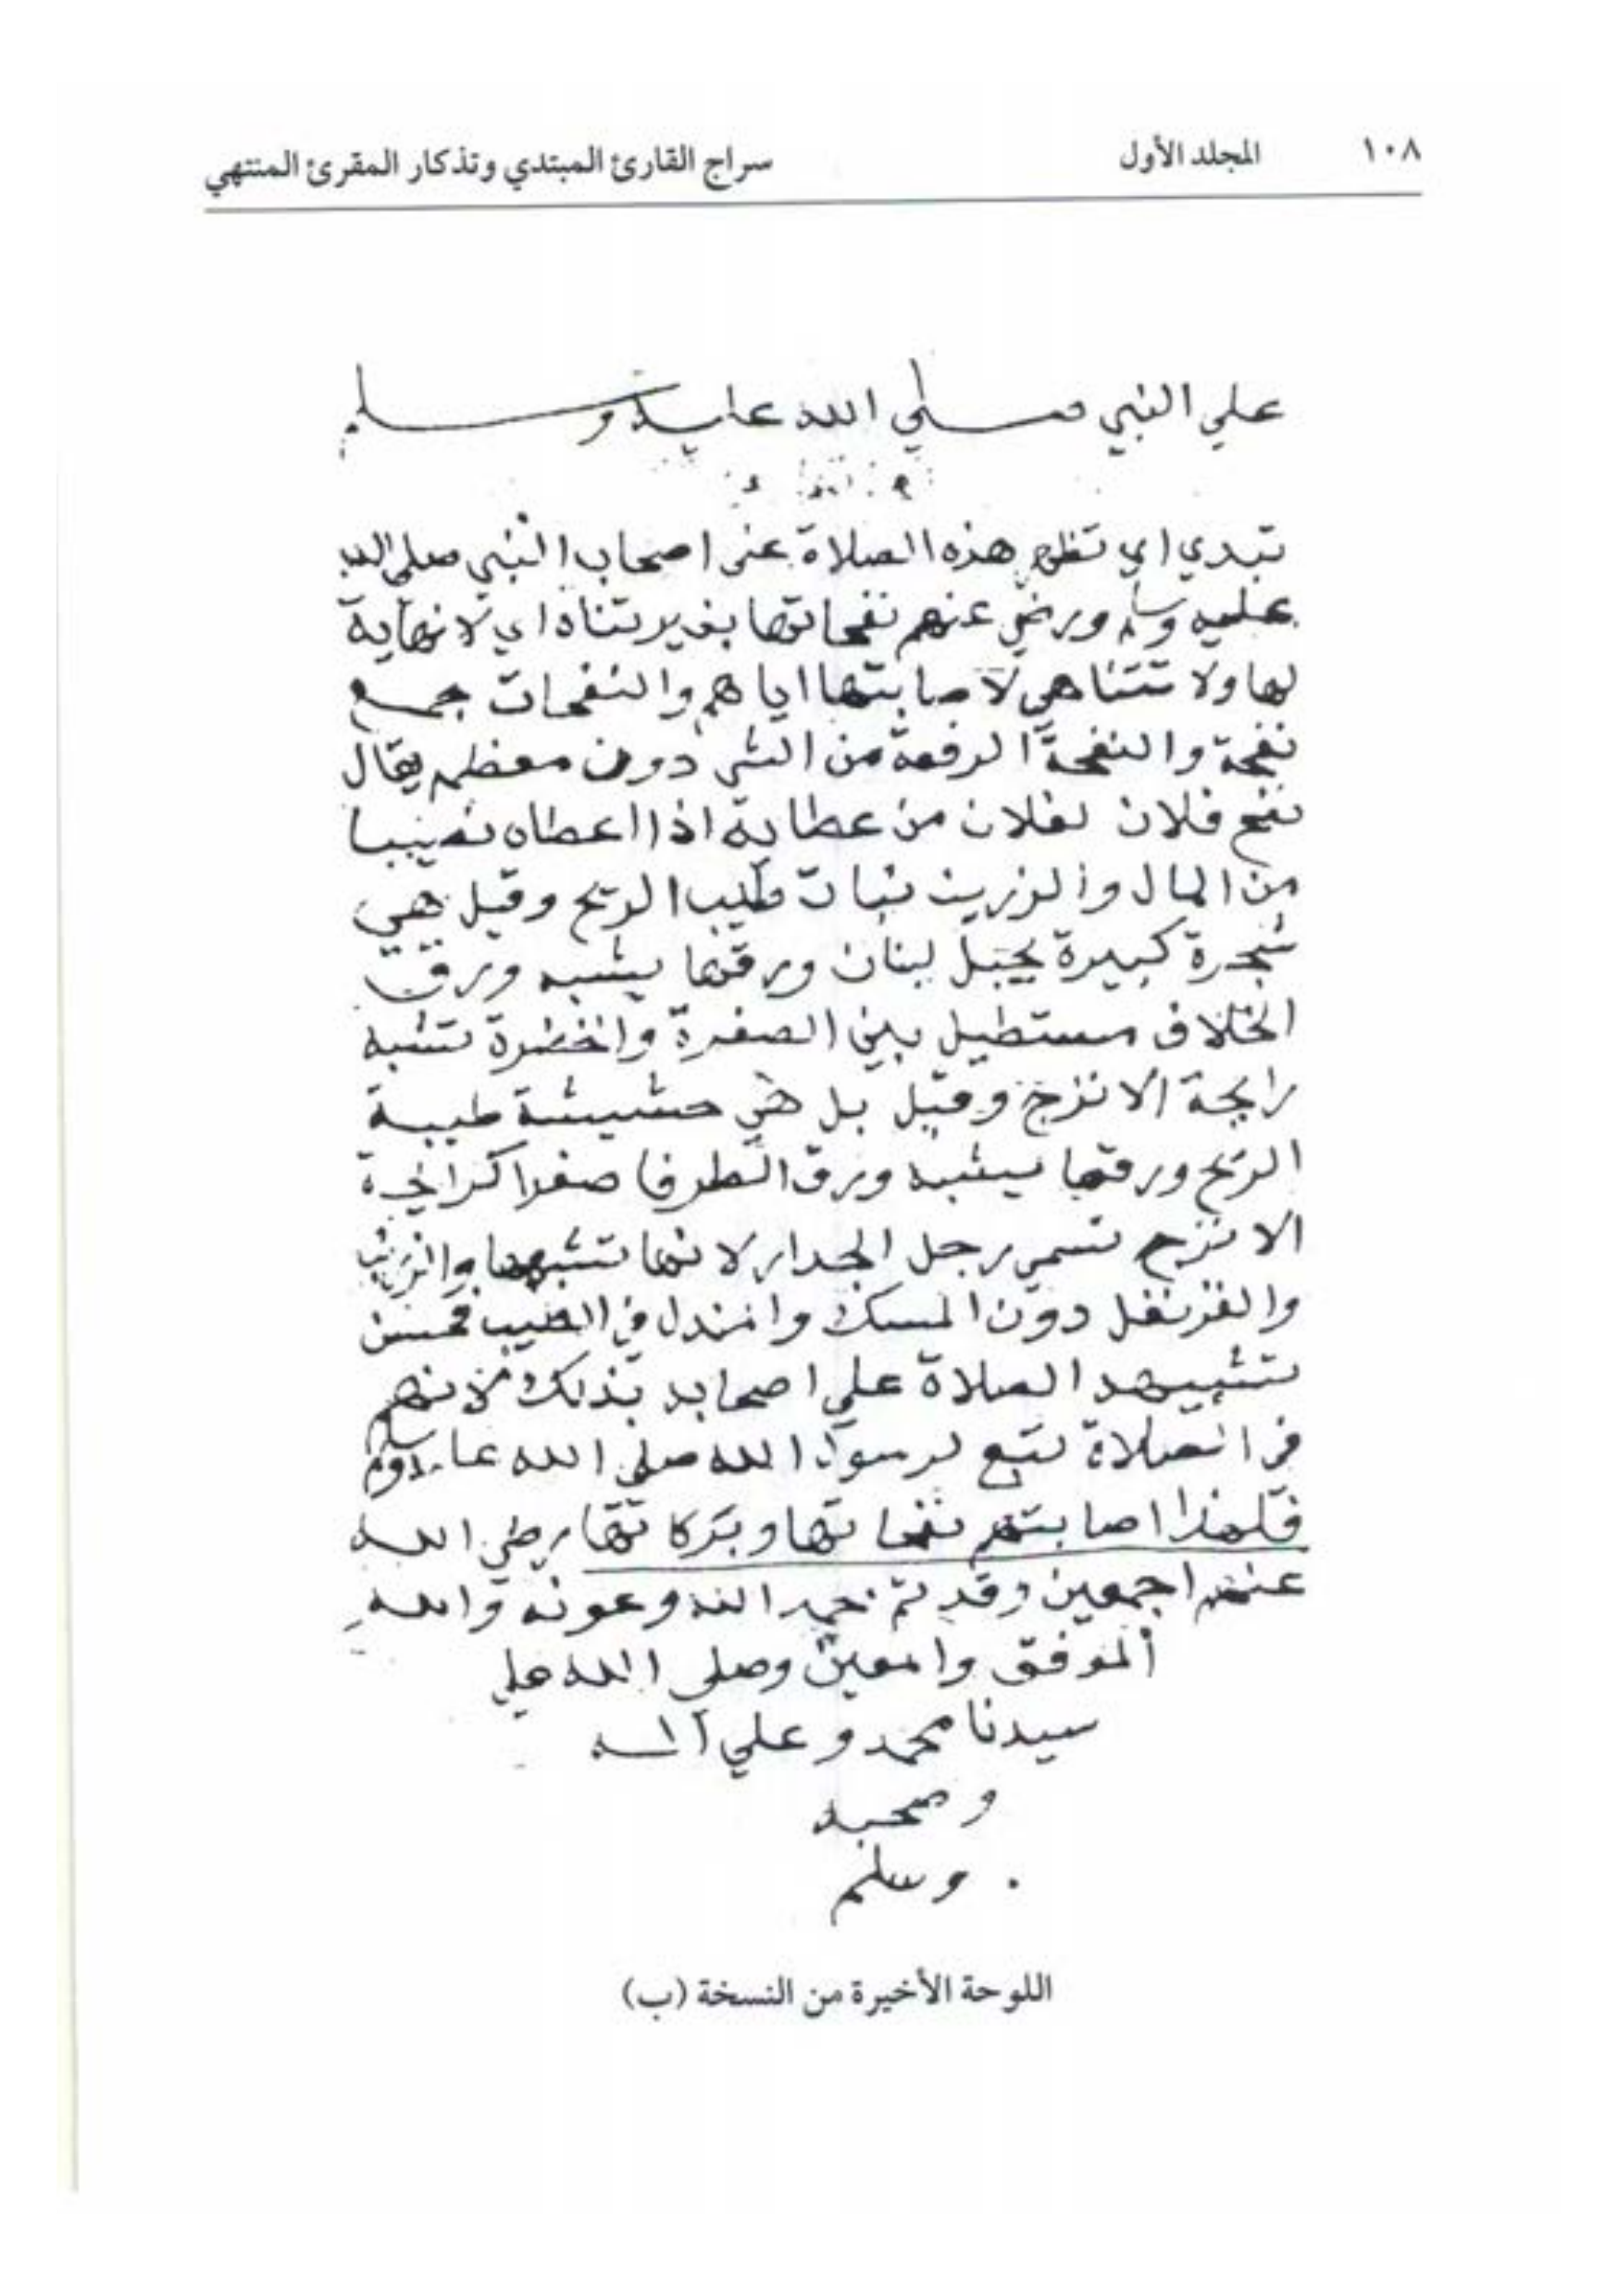 ١٠٨ المجلد الأول سراج القارئ المبتدي وتذكار المقرئ المنتهي
علي النبي صلي الله عليه وسلم
تبدي اي تظهر هذه الصلاة عني اصحاب النبي صلي الله
عليه وسلم ورضي عنهم نفحاتها بغير تناه اي لا نهاية
لها ولا تتناهي لاصابتها اياهم والنفحات جمع
نفحة والنفحة الرفعة من الشي دون معظمه يقال
نفح فلان لفلان من عطاية اذا اعطاه نصيبا
من المال والزرنب نبات طيب الريح وقيل هي
شجرة كبيرة بجبل لبنان ورقها يشبه ورق
الخلاف مستطيل بين الصفرة والخضرة تشبه
رايحة الاترج وقيل بل هي حشيشة طيبة
الريح ورقها يشبه ورق الطرفا صفرا كرايحة
الاترج تسمي رجل الجدار لانها تشبهها والزرنب
والقرنفل دون المسك والمندل في الطيب فحسن
تشبيهه الصلاة علي اصحابه بذلك لانهم
في الصلاة تبع لرسول الله صلي الله عليه وسلم
فلهذا اصابتهم نفحاتها وبركاتها رضي الله
عنهم اجمعين وقد تم بحمد الله وعونه والله
الموفق والمعين وصلي الله علي
سيدنا محمد وعلي آله
وصحبه
وسلم
اللوحة الأخيرة من النسخة (ب)